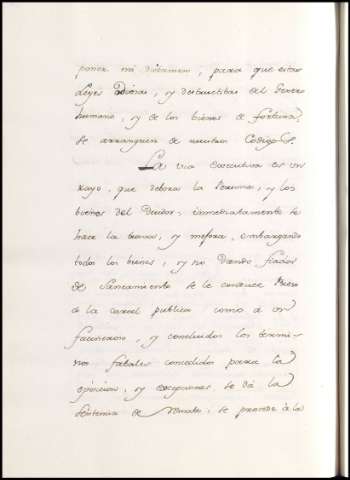 poner mi dictamen, para que estas
Leyes Odiosas, y destructibas del Genero
humano, y de los bienes de fortuna,
se arranquen de nuestro Codigo.
La via executiva es un
rayo, que debora la Persona, y los
bienes del Deudor: inmediatamente se
hace la trava, y mejora, embargando
todos los bienes, y no dando fiador
de Saneamiento se le conduce
a la carcel publica como a un
facineroso, y concluidos los termi-
nos fatales concedidos para la
oposicion, y excepciones se dà la
Sentencia de Remate: se procede à la